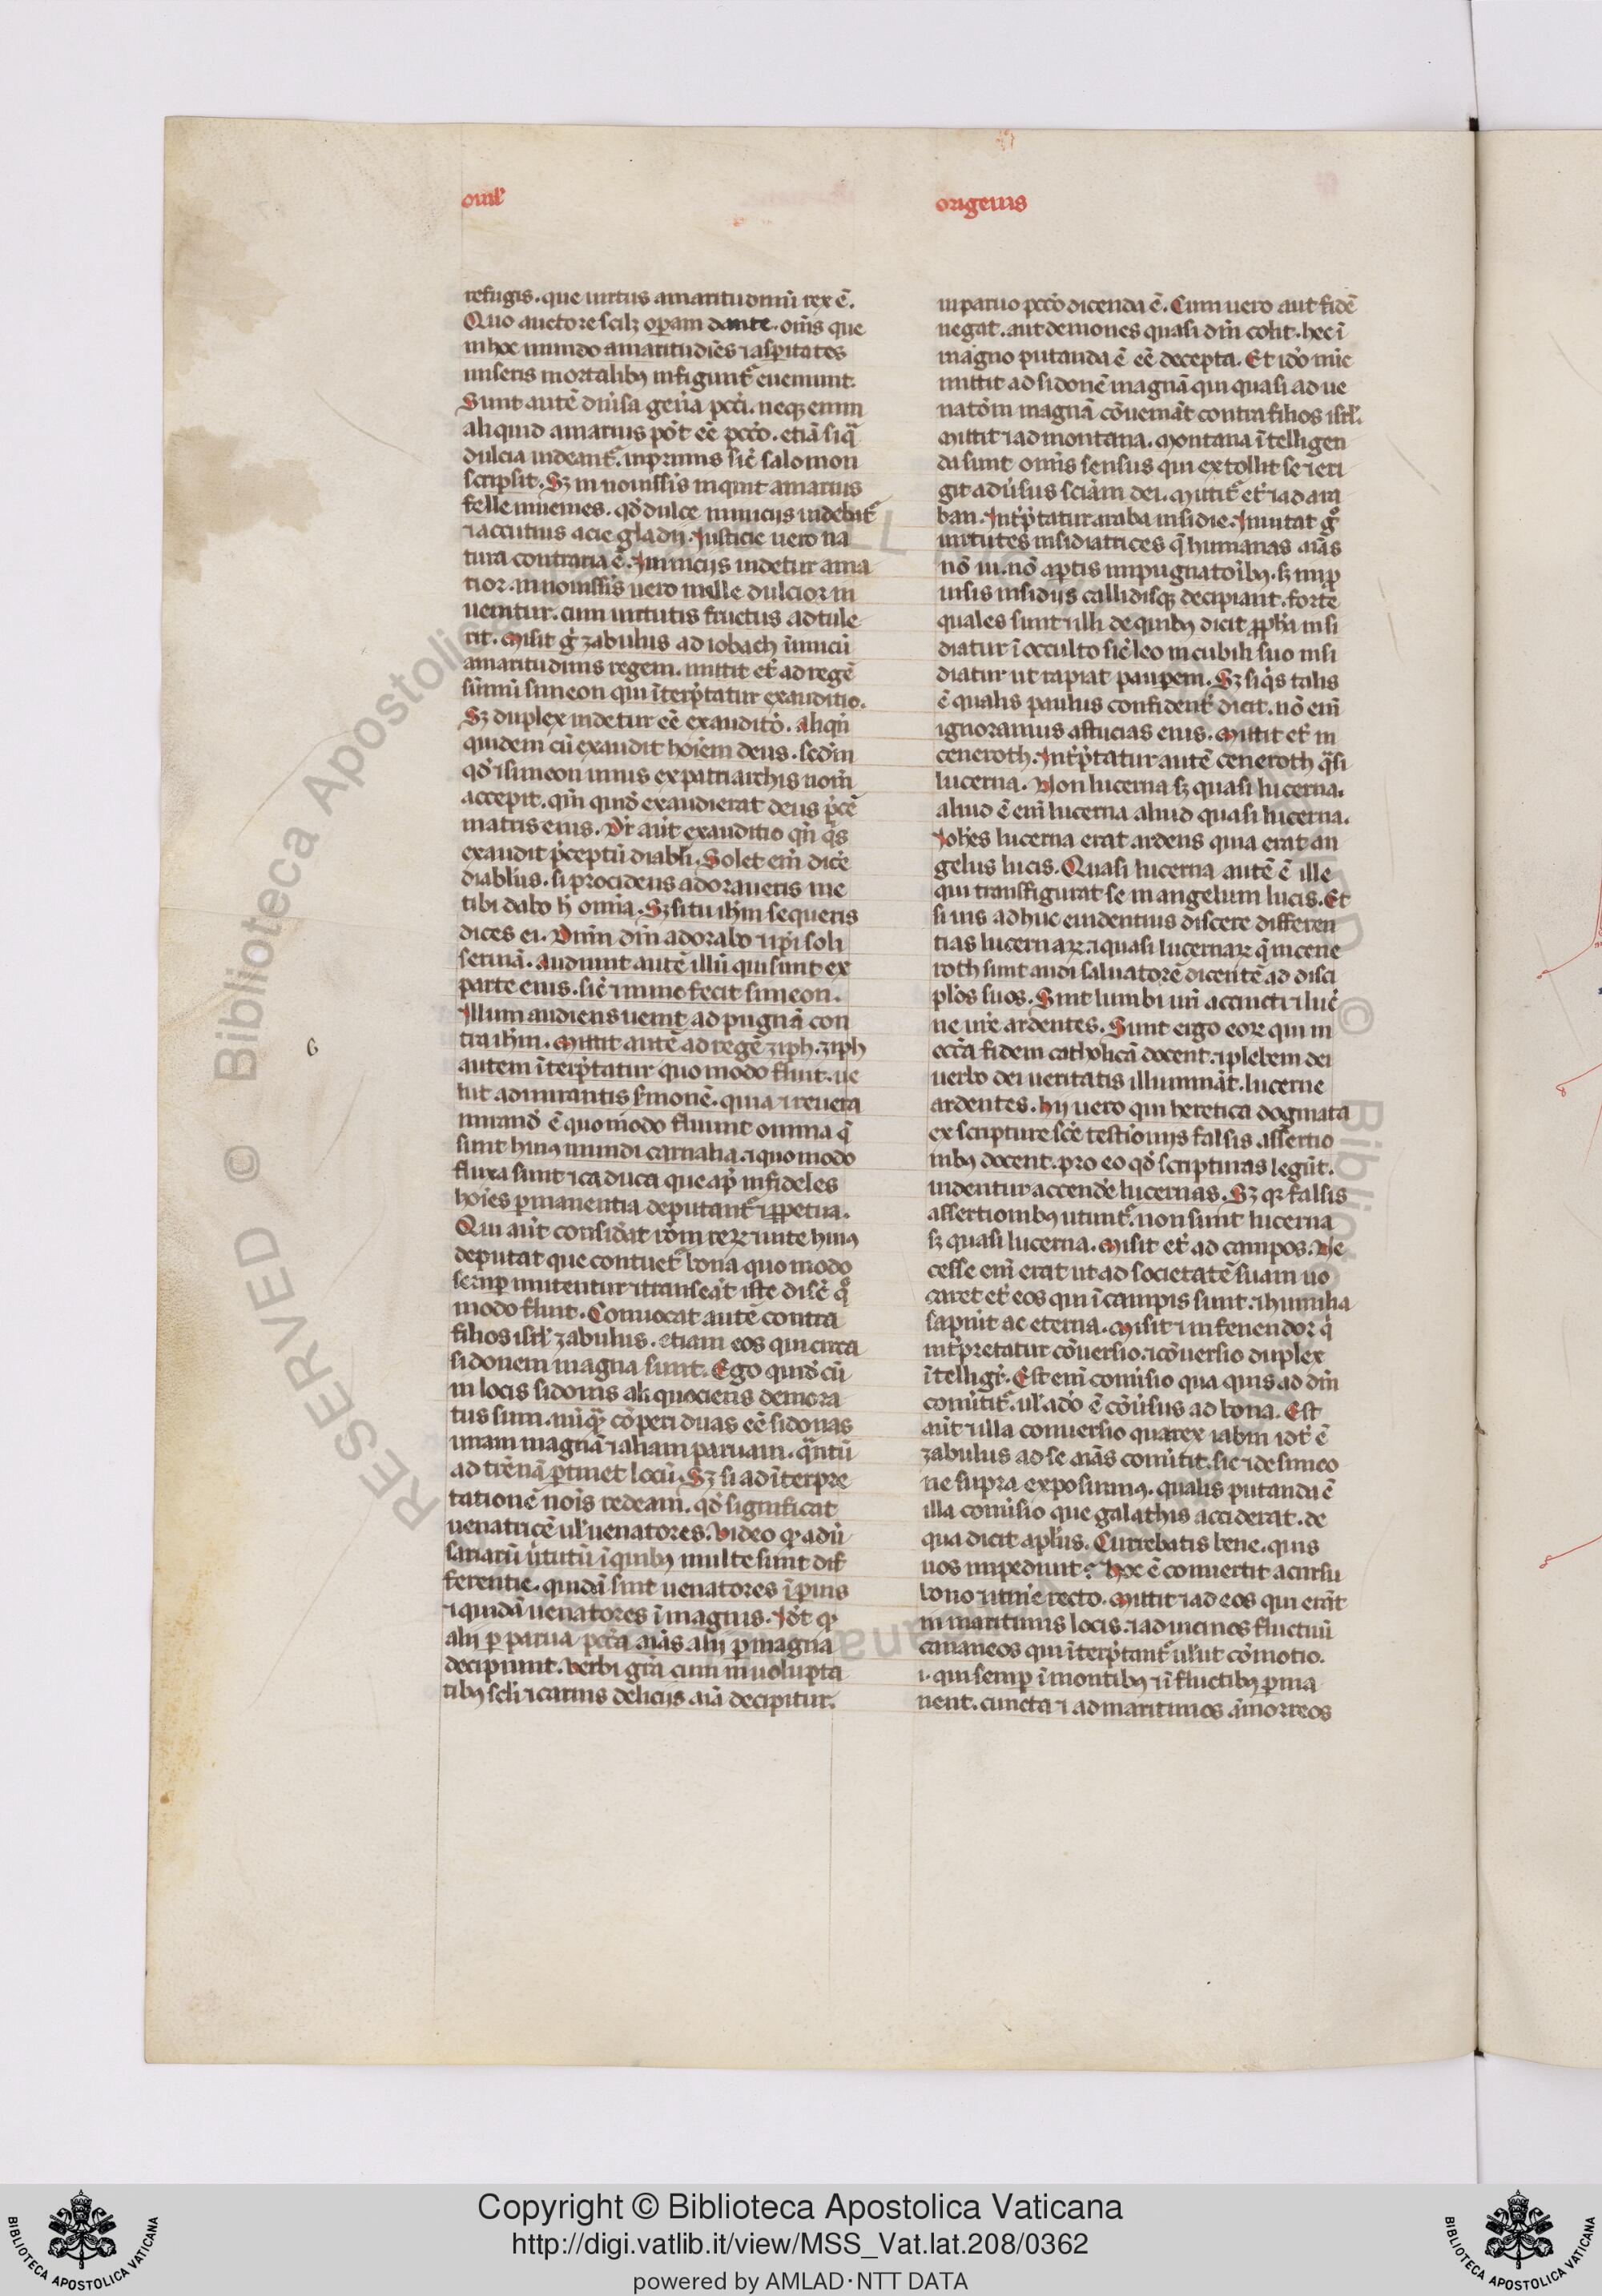 omĩl
origenis
refugis. que uirtus amaritudinũ rex ẽ.
Quo auctore scilꝫ oꝑam dante. oms̃ que
in hoc mundo amaritudiẽs ⁊ asꝑitates
miseris mortalibꝰ infigunt᷑ eueniunt.
Sunt autẽ diũsa geña pcc̃i. neqꝫ enim
aliquid amarius põt eẽ pcc̃o. etiã siq̃
dulcia uideant᷑. inprimis sic̃ salomon
scripsit. Sꝫ in nouissis̃ inquit amarius
felle inuenies. qd̃ dulce inimicijs uidebit᷑
⁊ accutius acie gladij. Justicie uero na
tura contraria ẽ. Jnimicijs uidetur ama
rior. in nouissis̃ uero melle dulcior in
uenitur. cum uirtutis fructus adtule
rit. Misit g̃ zabulus ad iobach inimicũ
amaritudinis regem. mittit et̃ ad regẽ
sũmũ simeon qui ĩterp̃tatur exauditio.
Sꝫ duplex uidetur eẽ exaudito̓. aliqñ
quidem cũ exaudit hoiẽm deus. scdm̃
qd̃ ⁊ simeon unus ex patriarchis nom̃
accepit. qm̃ quid̃ exaudierat deus p̃cẽ
matris eius. Dr̃ aũt exauditio qñ q̃s
exaudit p̃ceptũ diabli. Solet em̃ dicẽ
diablus. si procidens adoraueris me
tibi dabo h̃ omia. Sꝫ si tu ihm̃ sequeris
dices ei. Dnm̃ dm̃ adorabo ⁊ ip̃i soli
seruiã. Audiunt autẽ illũ qui sunt ex
parte eius. sic̃ ⁊ nunc fecit simeon.
Jllum audiens uenit ad pugnã con
tra ihm̃. Mittit autẽ ad regẽ ziph. ziph
autem ĩterp̃tatur quo modo fluit. ue
lut admirantis s̃monẽ. quia ⁊ reuera
mirand̃ ẽ quo modo fluunt omnia q̃
sunt huiꝰ mundi carnalia. ⁊ quo modo
fluxa sunt ⁊ caduca que ap̃ infideles
hoiẽs ꝑmanentia deputant᷑ ⁊ ꝑpetua.
Qui aũt considat̃ rõm reꝝ ⁊ uite huiꝰ
deputat que contuet᷑ bona quo modo
semꝑ mutentur ⁊ transeãt iste disc̃ q̊
modo fluit. Conuocat autẽ contra
filios isrl̃ zabulus. etiam eos qui circa
sidonem magna sunt. Ego quid̃ cũ
in locis sidonis aliquociens demora
tus sum. nũqꝫ cõperi duas eẽ sidonas
unam magnã ⁊ aliam paruam. q̃ntũ
ad trẽnã ꝑtinet locũ. Sꝫ si ad ĩterpre
tationẽ nois̃ redeam. qd̃ significat
uenatricẽ ul̃ uenatores. Video ꝙ adũ
sariarũ ũtutũ ĩ quibꝰ multe sunt dif
ferentie. quidã sint uenatores ĩ ꝑuis
⁊ quidã uenatores ĩ magnis. Jo̓t ꝙ
alij ꝑ parua pcc̃a aiãs alij ꝑ magna
decipiunt. Verbi grã cum in uolupta
tibꝰ scli̓ ⁊ carnis delicijs aiã decipitur.
6
in paruo pcc̃o dicenda ẽ. Cum uero aut fidẽ
negat. aut demones quasi dm̃ colit. hec ĩ
magno putanda ẽ eẽ decepta. Et ido̓ nũc
mittit ad sidonẽ magnã qui quasi ad ue
nato̓m magnã cõueniãt contra filios isrl̃.
Mittit ⁊ ad montana. Montana ĩtelligen
da sunt omĩs sensus qui extollit se ⁊ eri
git adũsus sciãm dei. Mittit᷑ et̃ ⁊ ad ara
ban. Jnt̃p̃tatur araba insidie. Jnuitat g̊
uirtutes insidiatrices q̃ humanas aiãs
nõ ui. nõ aꝑtis impugnato̓ibꝰ. sꝫ imꝑ
uisis insidijs callidisqꝫ decipiant. forte
quales sunt ⁊ illi de quibꝰ dicit ꝓph̃a insi
diatur ĩ occulto sic̃ leo in cubili suo insi
diatur ut rapiat pauꝑem. Sꝫ siq̃s talis
ẽ qualis paulus confident̃ dicit. nõ em̃
ignoramus astucias eius. Mittit et̃ in
ceneroth. Jnt̃p̃tatur autẽ ceneroth q̃si
lucerna. Non lucerna sꝫ quasi lucerna.
aliud ẽ em̃ lucerna aliud quasi lucerna.
Joh̃es lucerna erat ardens quia erat an
gelus lucis. Quasi lucerna autẽ ẽ ille
qui transfigurat se in angelum lucis. Et
si uis adhuc euidentius discere differen
tias lucernaꝝ. ⁊ quasi lucernaꝝ q̃ in cene
roth sunt audi saluatorẽ dicentẽ ad disci
plo̓s suos. Sint lumbi uri̓ accincti ⁊ luc̃
ne ure̓ ardentes. Sunt ergo eoꝝ qui in
ecc̃a fidem catholicã docent. ⁊ plebem dei
uerbo dei ueritatis illuminãt. lucerne
ardentes. hij uero qui heretica dogmata
ex scripture sc̃e testio̓nijs falsis assertio
nibꝰ docent. pro eo qd̃ scripturas legũt.
uidentur accendẽ lucernas. Sꝫ qꝛ falsis
assertionibꝰ utunt᷑. non sunt lucerna
sꝫ quasi lucerna. Misit et̃ ad campos. Ne
cesse em̃ erat ut ad societatẽ suam uo
caret et̃ eos qui ĩ campis sunt. ⁊ humilia
sapiũt ac eterna. Misit ⁊ in fenendor q̃
int̃pretatur cõuersio. ⁊ cõuersio duplex
ĩtelligr̃. Est em̃ conuũsio qua quis ad dm̃
conũtit᷑. ul̃ ado̓ ẽ cõũsus ad bona. Est
aũt ⁊ illa conuersio qua rex iabin idt̃ ẽ
zabulus ad se aiãs conũtit. sic ⁊ de simeo
ne supra exposuimꝰ. qualis putanda ẽ
illa conuũsio que galathis acciderat. de
qua dicit aplũs. Currebatis bene. quis
uos impediuit? Hoc ẽ conuertit a cursu
bono ⁊ itine̓ recto. Mittit ⁊ ad eos qui erãt
in maritimis locis. ⁊ ad uicinos fluctuũ
cananeos qui ĩterp̃tant᷑ ul̃ut cõmotio.
i. qui semꝑ ĩ montibꝰ ⁊ ĩ fluctibꝰ ꝑma
nent. cuncta ⁊ ad maritimos amorreos
Copyright © Biblioteca Apostolica Vaticana
http://digi.vatlib.it/view/MSS_Vat.lat.208/0362
powered by AMLAD·NTT DATA
BIBLIOTECA APOSTOLICA VATICANA
BIBLIOTECA APOSTOLICA VATICANA